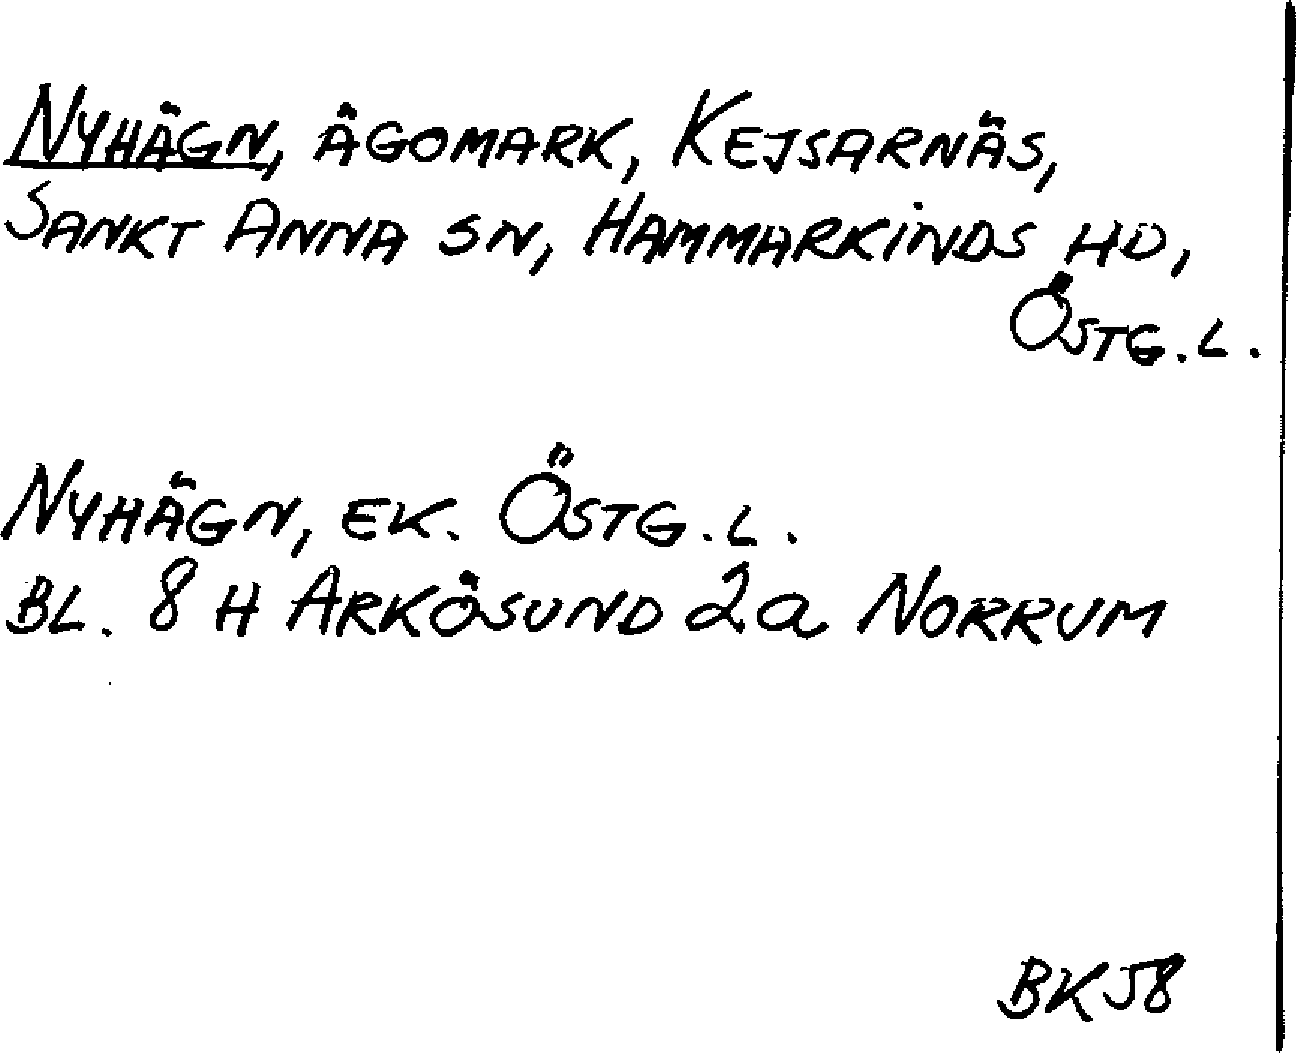 NYHÄGN, ÄGOMARK, KEJSARNÄS,
SANKT ANNA SN, HAMMARKINDS HD,
ÖSTG.L.
NYHÄGN, EK. ÖSTG.L.
BL. 8 H ARKÖSUND 2a NORRUM
BK58